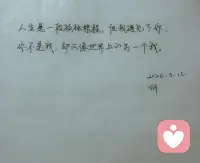 人生是一段孤独旅程，但我遇见了你，
你不是我，却又像世界上另一个我。
2020.5.13.